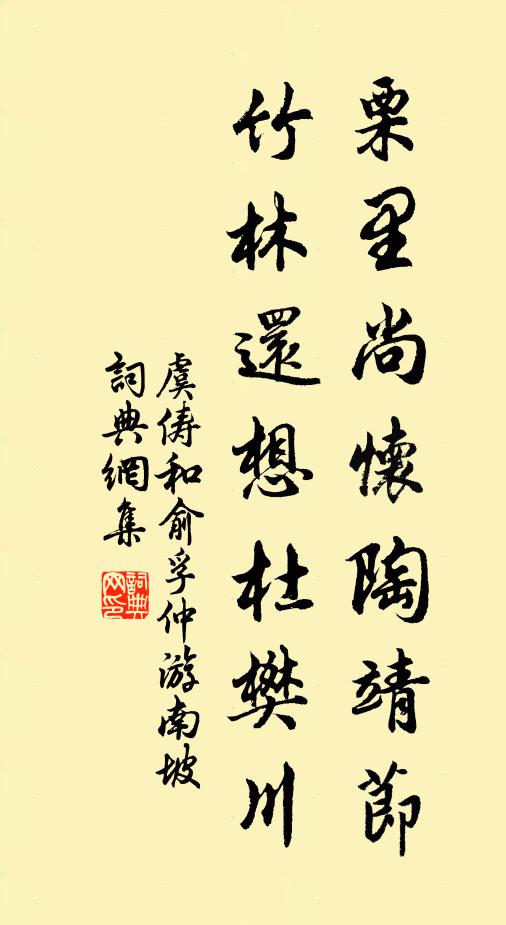 栗里尚懷陶靖節
竹林還想杜樊川
虞儔和俞孚仲游南坡
詞典網集
詞典网印